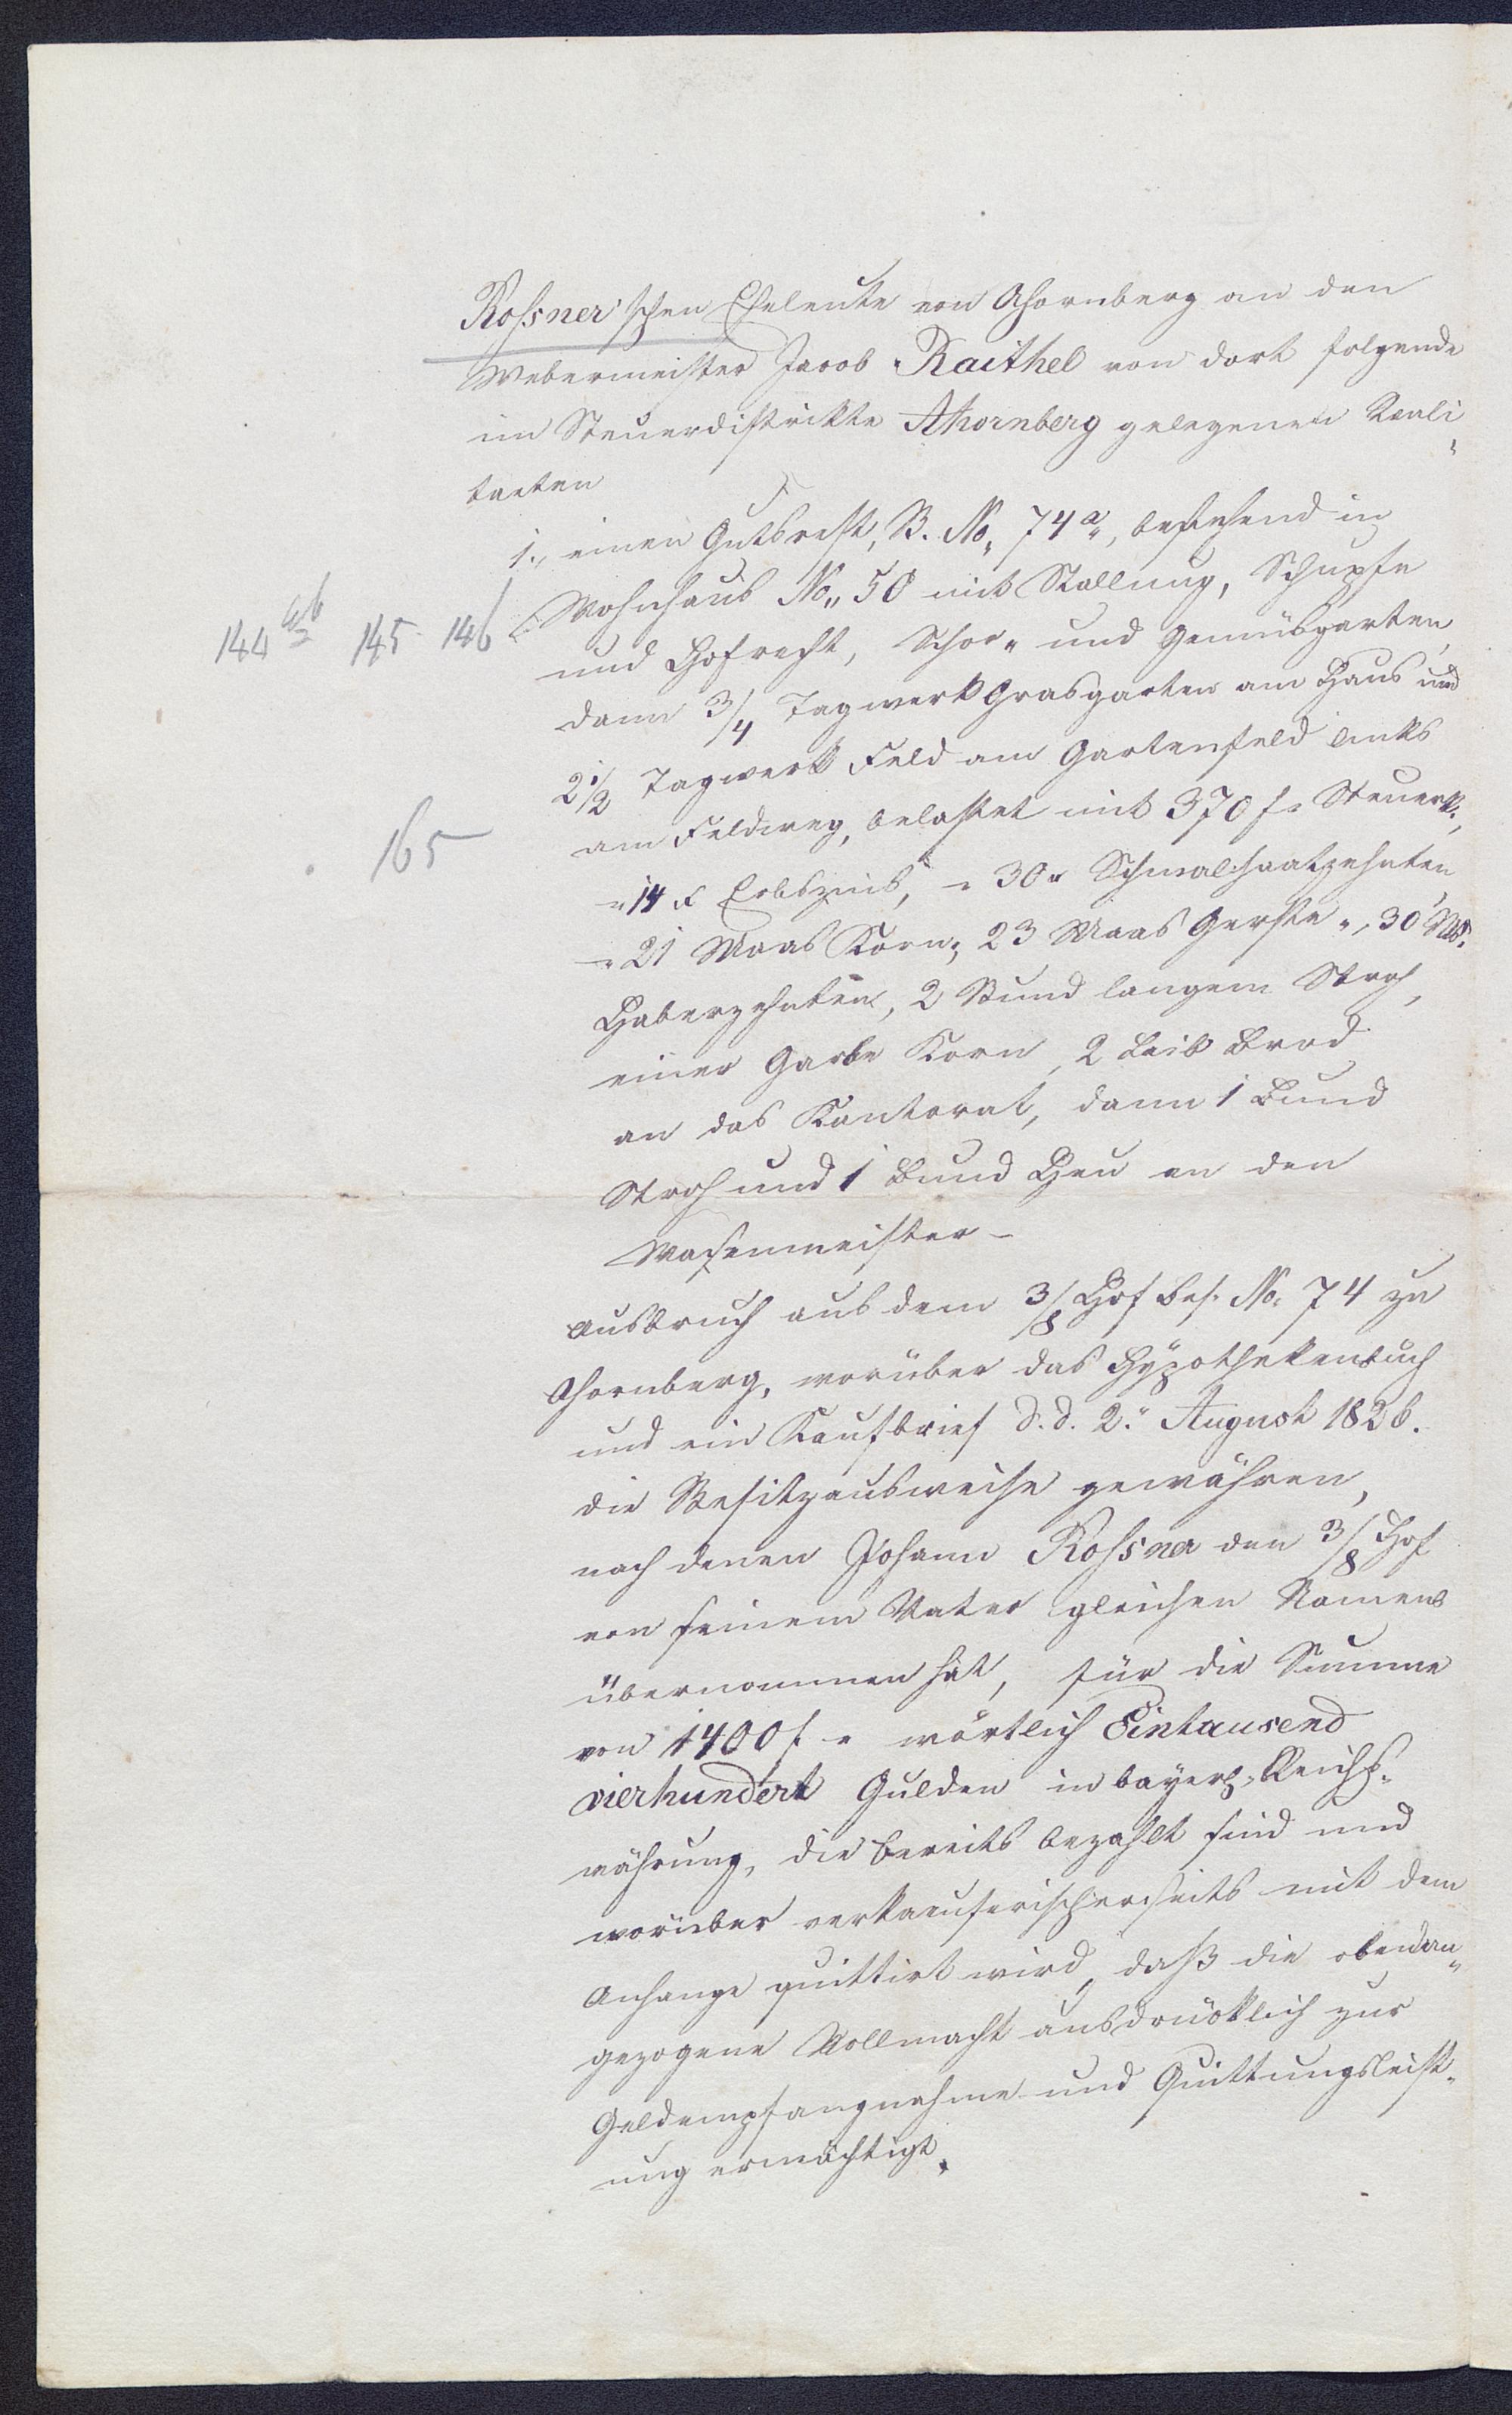 Rossner'schen Eheleute von Ahornberg an den
Webermeister Jacob Raithel von dort folgende
im Steuerdistrikte Ahornberg gelegenen Reali„
taeten
1., einen Gutsrest, B. No„ 74 a„, bestehend in
Wohnhaus No„ 50 mit Stallung, Schupfe
144 ab 145 146
und Hofrecht, Schor„ und Gemüsgarten,
dann 3/4 Tagwerk Grasgarten am Haus und
2 1/2 Tagwerk Feld am Gartenfeld links
am Feldweg, belastet mit 370 f„ Steuerk.,
165
„14 x Erbzins, „ 30 x Schmalsaatzehnten
„ 21 Maas Korn„, 23 Maas Gerste„, 30 Ms.
Haberzehnten, 2 Bund langem Stroh,
einer Garbe Korn, 2 Laib Brod
an das Kantorat, dann 1 Bund
Stroh und 1 Bund Heu an den
Wasenmeister –
Ausbruch aus dem 3/8 Hof Bes. No. 74 zu
Ahornberg, worüber das Hypothekenbuch
und ein Kaufbrief d. d. 2. August 1826.
die Besitzausweise gewähren,
nach denen Johann Rossner den 3/8 Hof
von seinem Vater gleichen Namens
übernommen hat, für die Summe
von 1400 f „ wörtlich Eintausend
vierhundert Gulden in bayer. Reichs„
währung, die bereits bezahlt sind und
worüber verkaeuferischerseits mit dem
Anhange quittirt wird, daß die obenan„
gezogene Vollmacht ausdrücklich zur
Geldempfangnahme und Quittungsleist„
ung ermächtigt.